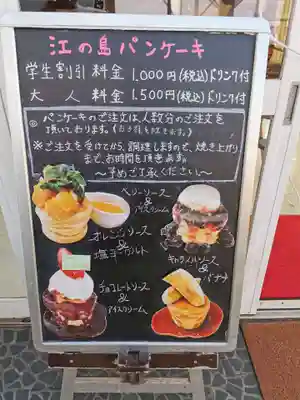 江の島パンケーキ
学生割引料金 1,000円(税込)ドリンク付
大人 1,500円(税込)ドリンク付
※パンケーキのご注文は、人数分のご注文を
頂いております。
※ご注文を受けてから、調理しますので、焼き上がり
まで、お時間を頂きます。
〜予めご了承ください〜
ベリーソース
&
アイスクリーム
オレンジソース
&
塩ヨーグルト
キャラメルソース
&
バナナ
チョコレートソース
&
アイスクリーム